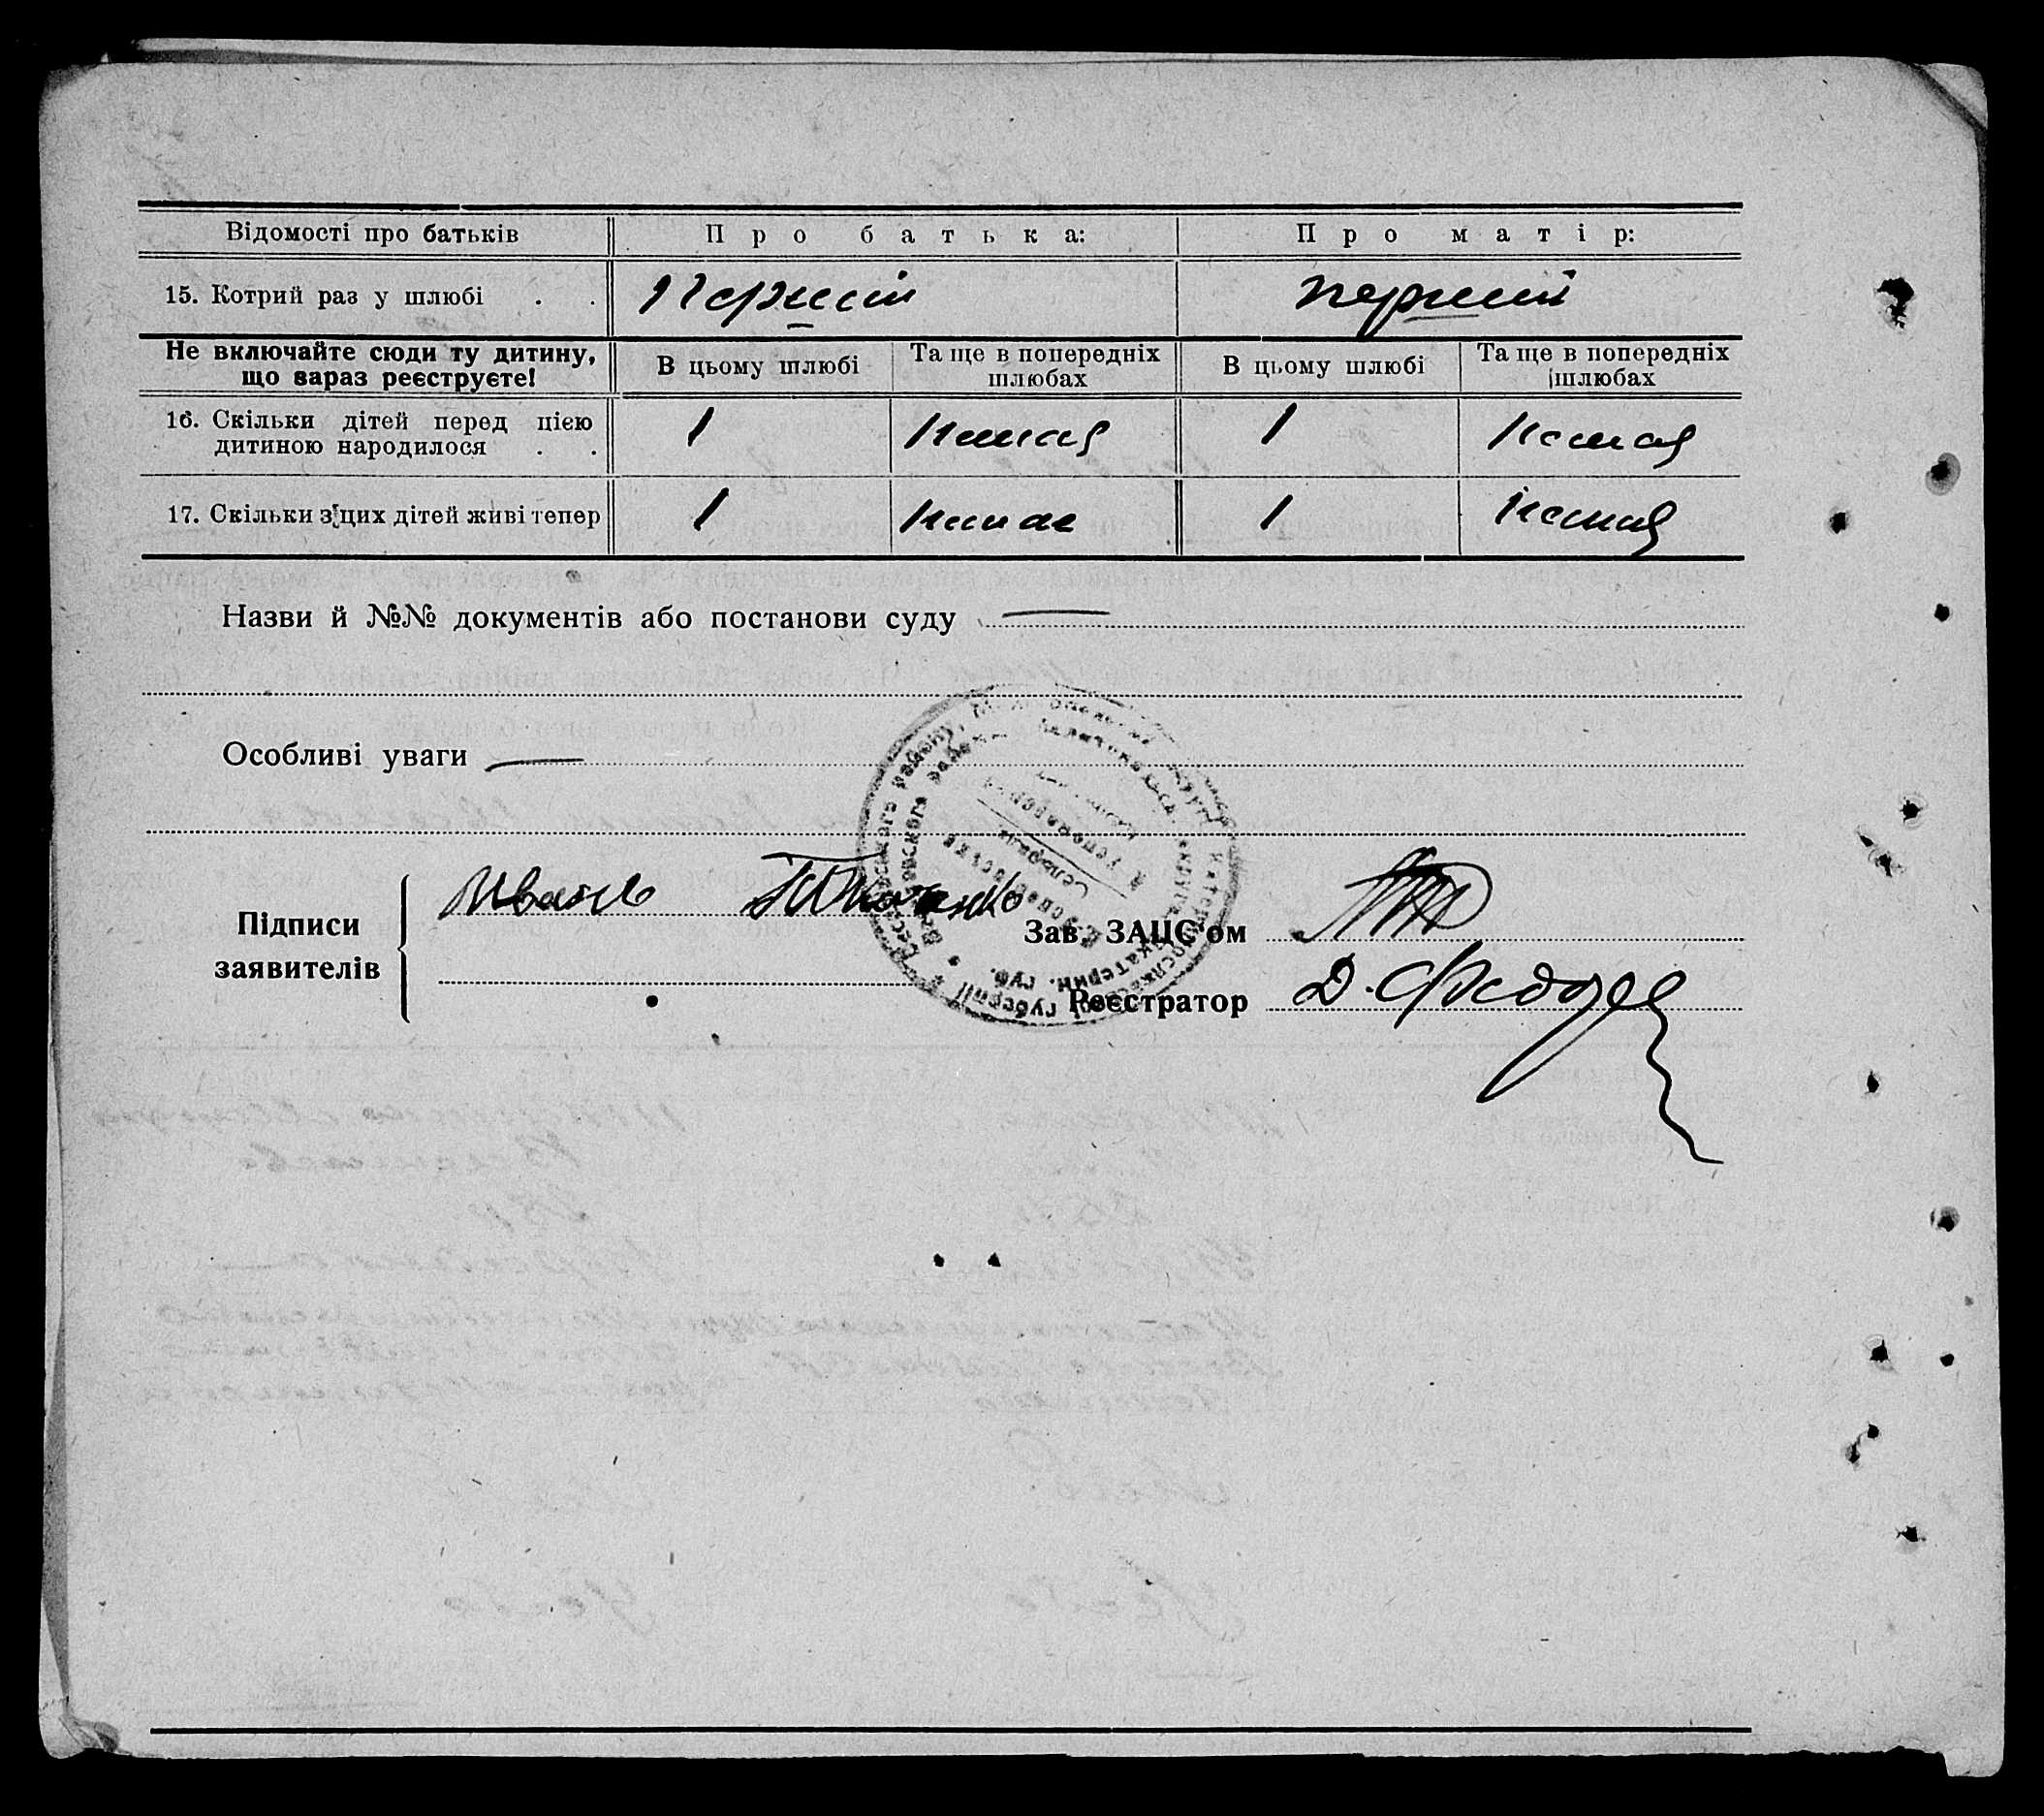 Відомості про батьків
Про батька:
Про матір:
15. Котрий раз у шлюбі . .
Перший
перший
Не включайте сюди ту дитину,
що зараз реєструєте!
В цьому шлюбі
Та ще в попередніх
шлюбах
В цьому шлюбі
Та ще в попередніх
шлюбах
16. Скільки дітей перед цією
дитиною народилося . .
1
немає
1
немає
17. Скільки з цих дітей живі тепер
1
немає
1
немає
Назви й №№ документів або постанови суду —
Особливі уваги —
Підписи
заявителів
Иванъ
Зав. ЗАЦС'ом
Реєстратор
Д.
району,
района
Сельради
губернії
Катерин. губ.